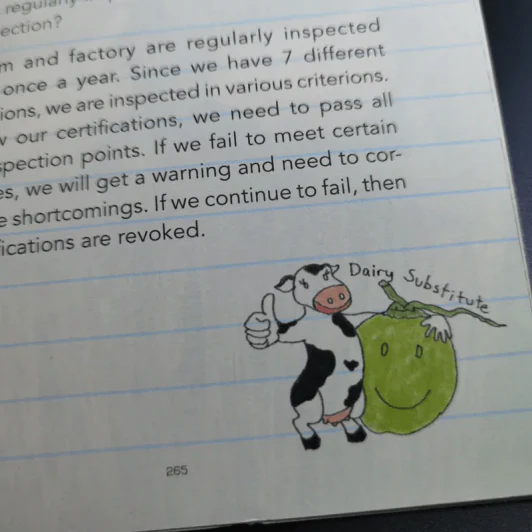 regularly
ection?
m and factory are regularly inspected
once a year. Since we have 7 different
ions, we are inspected in various criterions.
w our certifications, we need to pass all
spection points. If we fail to meet certain
es, we will get a warning and need to cor-
e shortcomings. If we continue to fail, then
ications are revoked.
Dairy Substitute
265